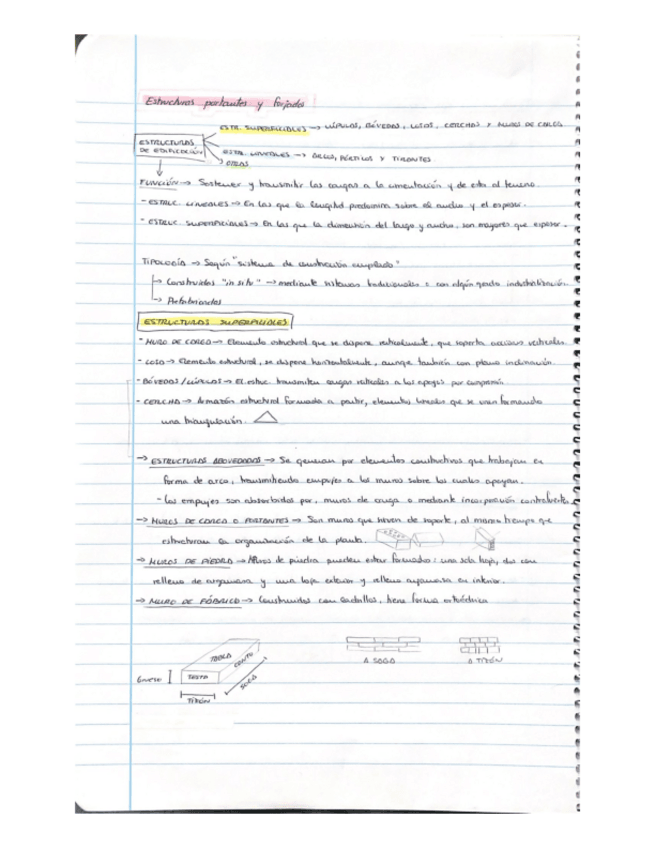 Estructuras portantes y forjados
ESTR. SUPERFICIALES → CÚPULAS, BÓVEDAS, LOSAS, CERCHAS Y MUROS DE CARGA.
ESTRUCTURAS
DE EDIFICACIÓN
ESTR. LINEALES → ARCOS, PÓRTICOS Y TIRANTES.
OTRAS
FUNCIÓN → Sostener y transmitir las cargas a la cimentación y de esta al terreno.
- ESTRUC. LINEALES → En las que la longitud predomina sobre el ancho y el espesor.
- ESTRUC. SUPERFICIALES → En las que la dimensión del largo y ancho, son mayores que espesor.
TIPOLOGÍA → Según "sistema de construcción empleado"
→ Construidas "in situ" → mediante sistemas tradicionales o con algún grado industrialización.
→ Prefabricadas
ESTRUCTURAS SUPERFICIALES
- MURO DE CARGA → Elemento estructural que se dispone verticalmente, que soporta acciones verticales.
- LOSA → Elemento estructural, se dispone horizontalmente, aunque también con plano inclinación.
- BÓVEDAS/CÚPULAS → El estruc. transmiten cargas verticales a los apoyos por compresión.
- CERCHA → Armazón estructural formada a partir, elementos lineales que se unen formando
una triangulación.
→ ESTRUCTURAS ABOVEDADAS → Se generan por elementos constructivos que trabajan en
forma de arco, transmitiendo empujes a los muros sobre los cuales apoyan.
- Los empujes son absorbidos por, muros de carga o mediante incorporación contrafuertes.
→ MUROS DE CARGA O PORTANTES → Son muros que sirven de soporte, al mismo tiempo que
estructuran la organización de la planta.
→ MUROS DE PIEDRA → Muros de piedra pueden estar formados: una sola hoja, dos con
relleno de argamasa y una hoja exterior y relleno argamasa en interior.
→ MURO DE FÁBRICA → Construidos con ladrillos, tiene forma ortoédrica
TABLA
CANTO
Grueso
TESTA
SOGA
TIZÓN
A SOGA
A TIZÓN